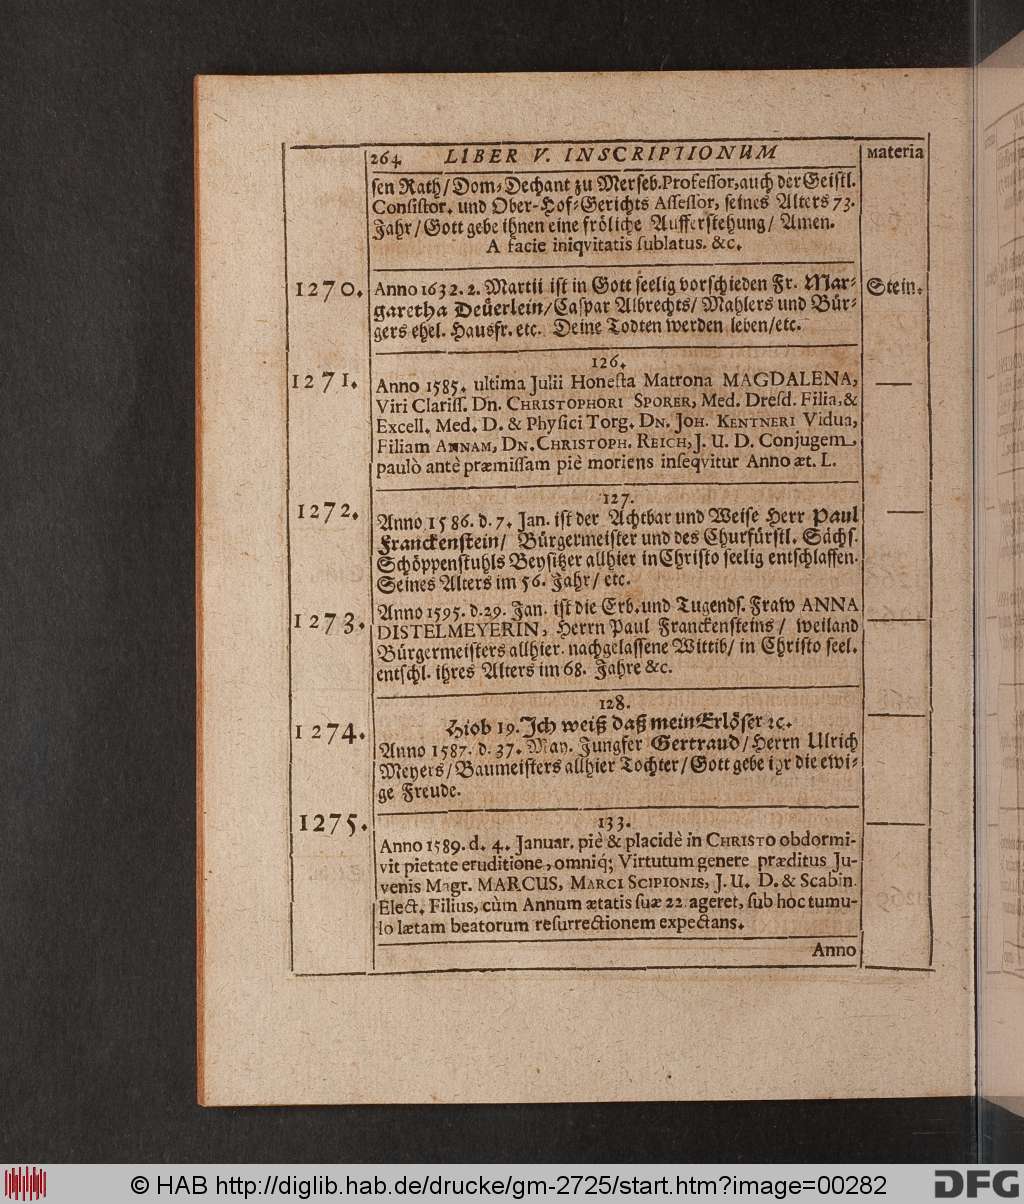 264. LIBER V. INSCRIPTIONUM Materia
sen Rath/ Dom-Dechant zu Merseb. Professor, auch der Geistl.
Consistor. und Ober-Hof-Gerichts Assessor, seines Alters 73.
Jahr/ Gott gebe ihnen eine fröliche Aufferstehung/ Amen.
A facie iniqvitatis sublatus. &c.
1270. Anno 1632. 2. Martii ist in Gott seelig vorschieden Fr. Mar- Stein.
garetha Deüerlein/ Caspar Albrechts/ Mahlers und Bür-
gers ehel. Hausfr. etc. Deine Todten werden leben/ etc.
126.
1271. Anno 1585. ultima Julii Honesta Matrona MAGDALENA, —
Viri Clariss. Dn. CHRISTOPHORI SPORER, Med. Dresd. Filia, &
Excell. Med. D. & Physici Torg. DN. JOH. KENTNERI Vidua,
Filiam ANNAM, DN. CHRISTOPH. REICH, J. U. D. Conjugem,
paulò antè præmissam piè moriens inseqvitur Anno æt. L.
127.
1272. Anno 1586. d. 7. Jan. ist der Achtbar und Weise Herr Paul —
Franckenstein/ Bürgermeister und des Churfürstl. Sächs.
Schöppenstuhls Beysitzer allhier in Christo seelig entschlaffen.
Seines Alters im 56. Jahr/ etc.
1273. Anno 1595. d. 29. Jan. ist die Erb. und Tugends. Fraw ANNA —
DISTELMEYERIN, Herrn Paul Franckensteins/ weiland
Bürgermeisters allhier. nachgelassene Wittib/ in Christo seel.
entschl. ihres Alters im 68. Jahre &c.
128.
Hiob 19. Jch weiß daß mein Erlöser ꝛc.
1274. Anno 1587. d. 37. May. Jungfer Gertraud/ Herrn Ulrich —
Meyers/ Baumeisters allhier Tochter/ Gott gebe ihr die ewi-
ge Freude.
133.
1275. Anno 1589. d. 4. Januar. piè & placidè in CHRISTO obdormi- —
vit pietate eruditione, omniq; Virtutum genere præditus Ju-
venis Magr. MARCUS, MARCI SCIPIONIS, J. U. D. & Scabin.
Elect. Filius, cùm Annum ætatis suæ 22 ageret, sub hoc tumu-
lo lætam beatorum resurrectionem expectans.
Anno
© HAB http://diglib.hab.de/drucke/gm-2725/start.htm?image=00282
DFG